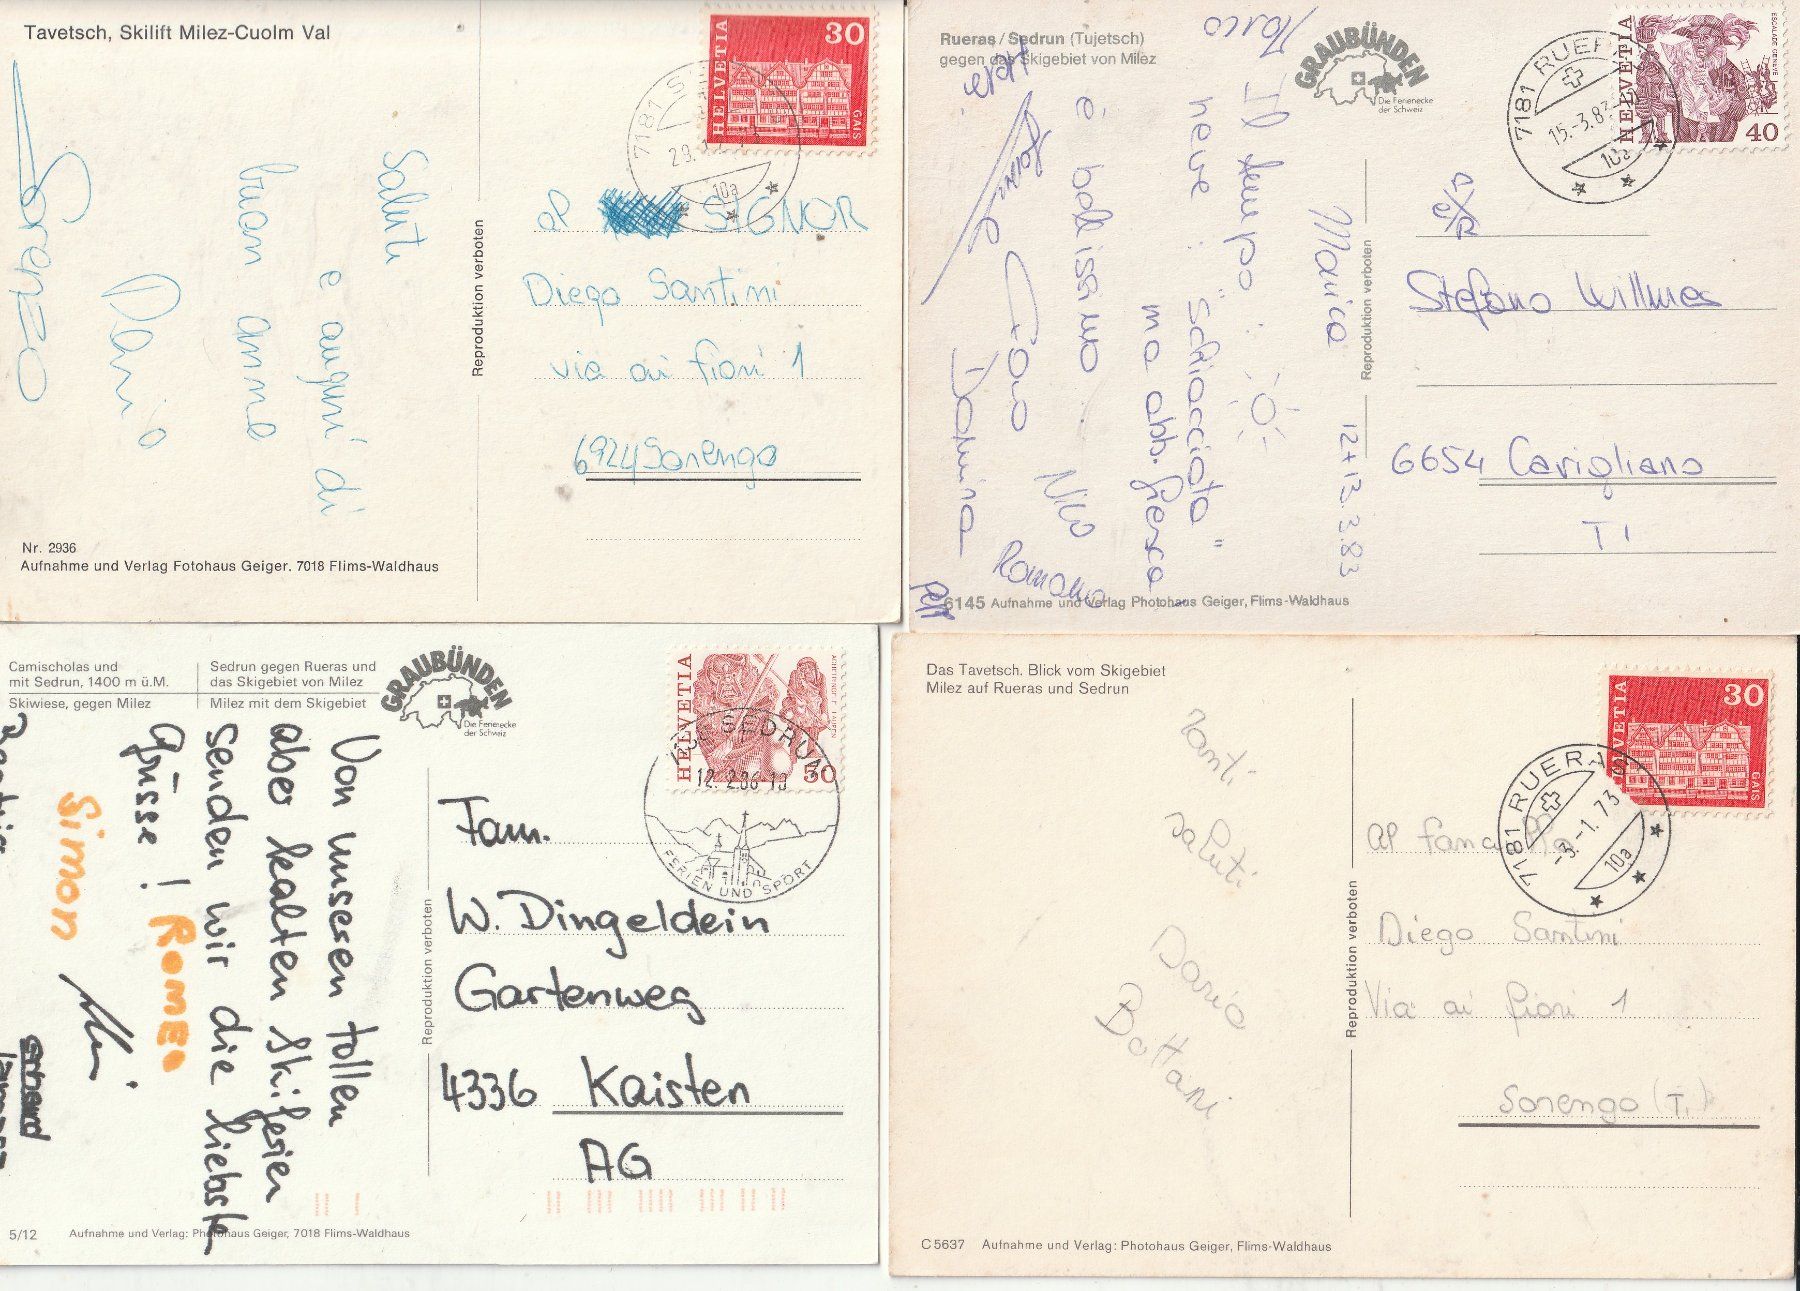 Tavetsch, Skilift Milez-Cuolm Val
HELVETIA
30
GAIS
7181 S
29.
10a
Saluti
e auguri di
buon anno
Dario
Lorenzo
al SIGNOR
Diego Santini
via ai fiori 1
6924 Sorengo
Reproduktion verboten
Nr. 2936
Aufnahme und Verlag Fotohaus Geiger. 7018 Flims-Waldhaus
Rueras/Sedrun (Tujetsch)
gegen das Skigebiet von Milez
GRAUBÜNDEN
Die Ferienecke
der Schweiz
HELVETIA
ESCALADE GENEVE
40
7181 RUERAS
15.-3.83
10a
12+13.3.83
Marica
Il tempo:
neve: "schiacciata"
ma abb. fresca
è bellissimo
Nico
Romano
Domina
Stefano Willmes
6654 Cavigliano
TI
Reproduktion verboten
6145 Aufnahme und Verlag Photohaus Geiger, Flims-Waldhaus
Camischolas und
mit Sedrun, 1400 m ü.M.
Skiwiese, gegen Milez
Sedrun gegen Rueras und
das Skigebiet von Milez
Milez mit dem Skigebiet
GRAUBÜNDEN
Die Ferienecke
der Schweiz
HELVETIA
50
SEDRUN
12.2.86-10
FERIEN UND SPORT
Von unseren tollen
aber kalten Skiferien
senden wir die liebsten
Grüsse!
ROMEO
Simon
Fam.
W. Dingeldein
Gartenweg
4336 Kaisten
AG
Reproduktion verboten
5/12 Aufnahme und Verlag: Photohaus Geiger, 7018 Flims-Waldhaus
Das Tavetsch. Blick vom Skigebiet
Milez auf Rueras und Sedrun
HELVETIA
30
GAIS
7181 RUERAS
-3.-1.73
10a
Tanti
saluti
Dario
Bottani
Al famiglia
Diego Santini
Via ai fiori 1
Sorengo (T.)
Reproduktion verboten
C 5637 Aufnahme und Verlag: Photohaus Geiger, Flims-Waldhaus